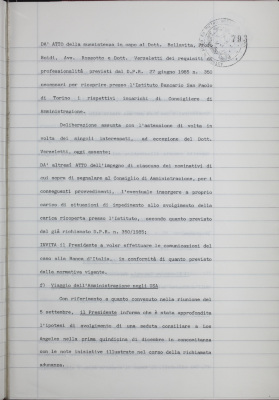 DA' ATTO della sussistenza in capo ai Dott. Bellavita, Prof.
Baldi, Avv. Rossotto e Dott. Verzeletti dei requisiti di
professionalità previsti dal D.P.R. 27 giugno 1985 n. 350
necessari per ricoprire presso l'Istituto Bancario San Paolo
di Torino i rispettivi incarichi di Consigliere di
Amministrazione.
Deliberazione assunta con l'astensione di volta in
volta dei singoli interessati, ad eccezione del Dott.
Verzeletti, oggi assente;
DA' altresì ATTO dell'impegno di ciascuno dei nominativi di
cui sopra di segnalare al Consiglio di Amministrazione, per i
conseguenti provvedimenti, l'eventuale insorgere a proprio
carico di situazioni di impedimento allo svolgimento della
carica ricoperta presso l'Istituto, secondo quanto previsto
dal già richiamato D.P.R. n. 350/1985;
INVITA il Presidente a voler effettuare le comunicazioni del
caso alla Banca d'Italia, in conformità di quanto previsto
dalla normativa vigente.
2) Viaggio dell'Amministrazione negli USA
Con riferimento a quanto convenuto nella riunione del
5 settembre, il Presidente informa che è stata approfondita
l'ipotesi di svolgimento di una seduta consiliare a Los
Angeles nella prima quindicina di dicembre in concomitanza
con le note iniziative illustrate nel corso della richiamata
adunanza.